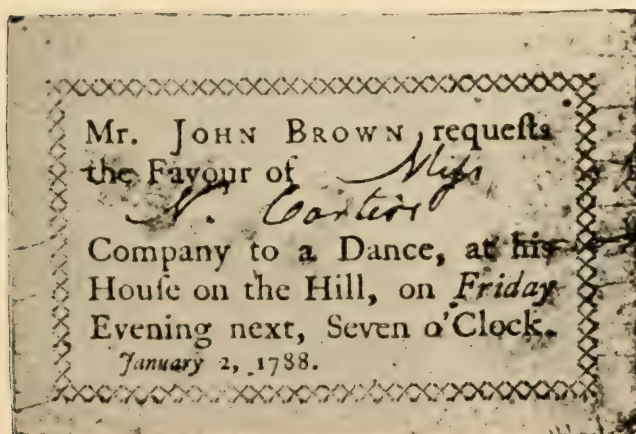 Mr. JOHN BROWN requeſts
the Favour of Miſs
N. Carter's
Company to a Dance, at his
Houſe on the Hill, on Friday
Evening next, Seven o'Clock.
January 2, 1788.